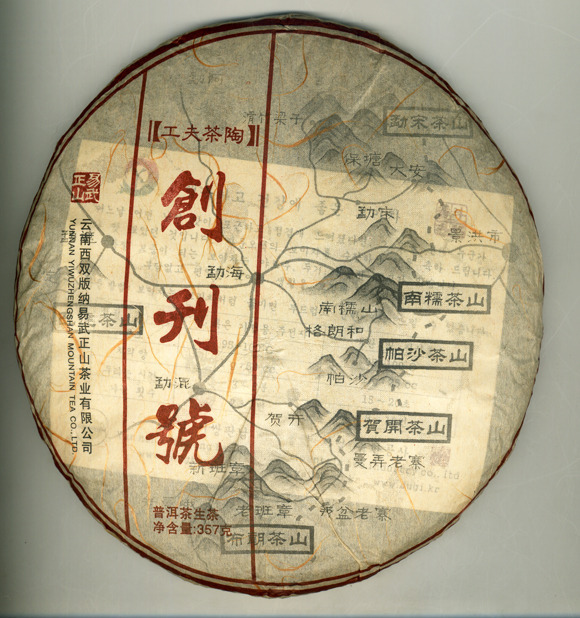 【工夫茶陶】
創刊號
易武正山
云南西双版纳易武正山茶业有限公司
YUNNAN YIWUZHENGSHAN MOUNTAIN TEA CO.,LTD
普洱茶生茶
净含量:357克
滑竹梁子
勐宋茶山
保塘
大安
勐宋
景洪市
勐海
南糯山
南糯茶山
格朗和
帕沙茶山
帕沙
勐混
贺开
賀開茶山
曼弄老寨
新班章
老班章
弄盆老寨
布朗茶山
茶山